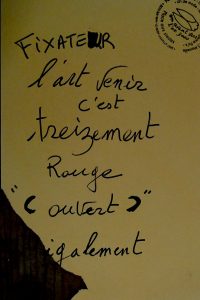 FIXATEUR
l'art venir
c'est
treizement
Rouge
"( ouvert )"
igalement